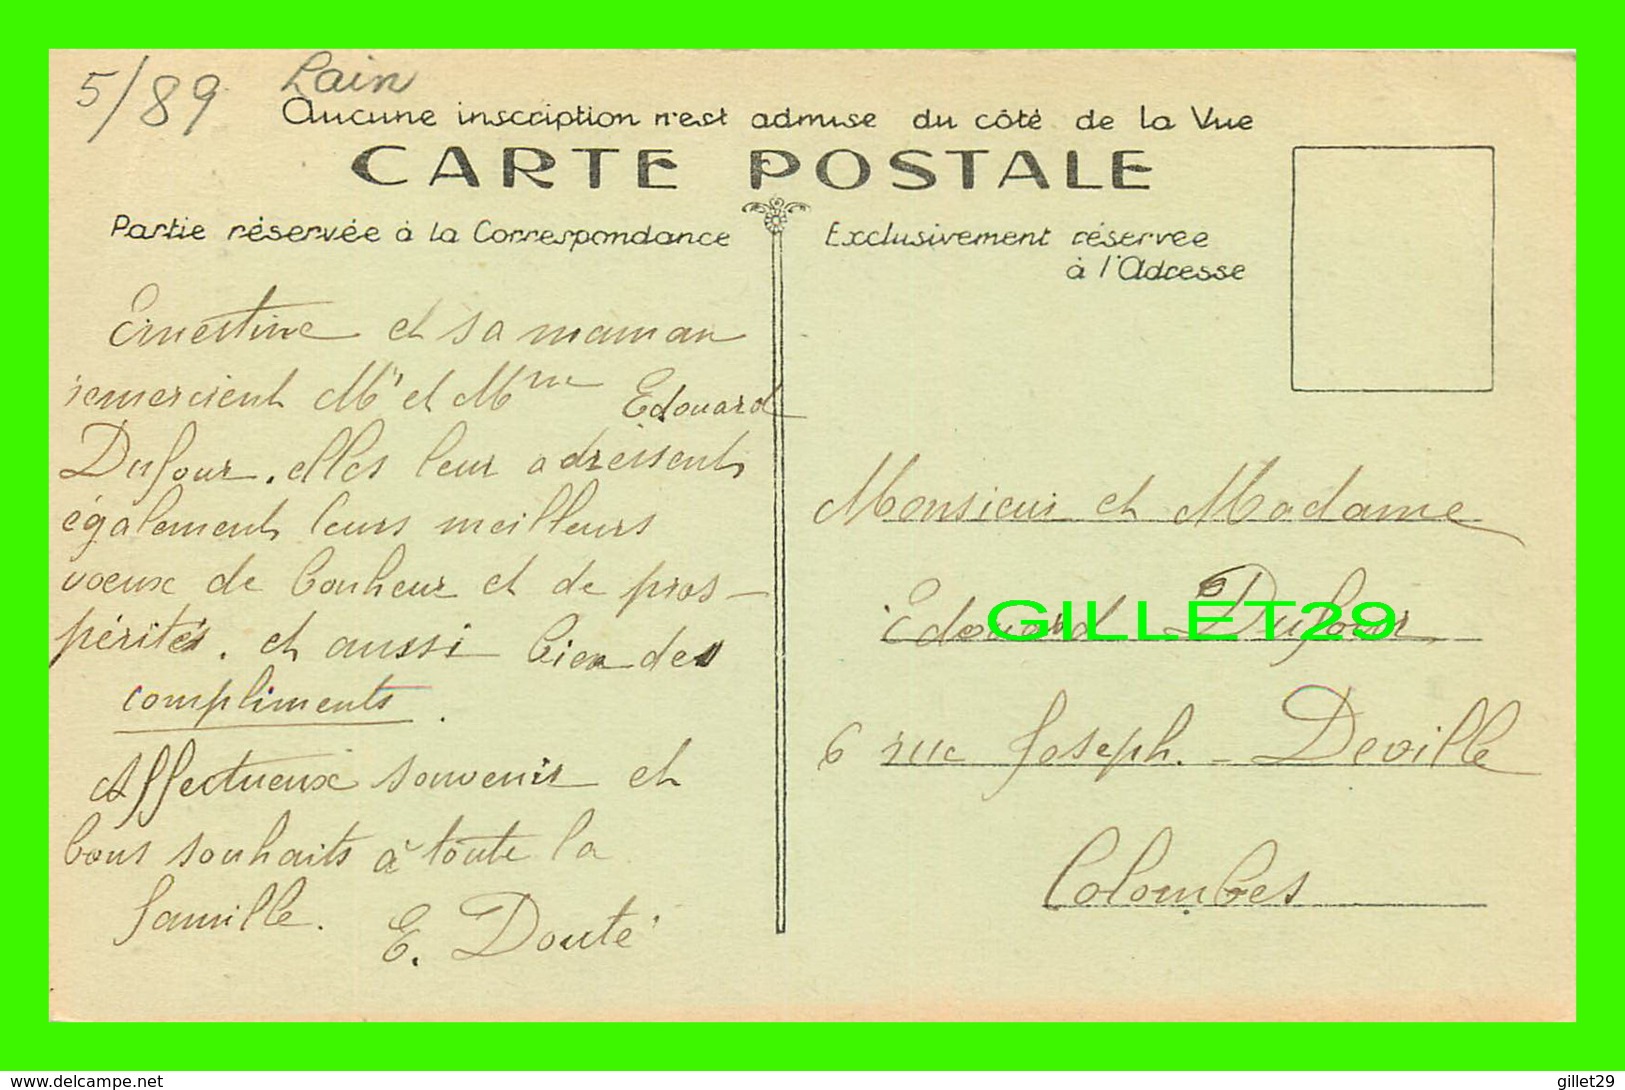 5/89 Lain
Aucune inscription n'est admise du côté de la Vue
CARTE POSTALE
Partie réservée à la Correspondance
Exclusivement réservée
à l'Adresse
Ernestine et sa maman
remercient Mr et Mme Edouard
Dufour. elles leur adressent
également leurs meilleurs
voeux de bonheur et de pros-
pérités. et aussi bien des
compliments.
Affectueux souvenir et
bons souhaits à toute la
famille.
E. Douté
Monsieur et Madame
Edouard Dufour
6 rue Joseph. - Deville
Colombes
GILLET29
www.delcampe.net
gillet29